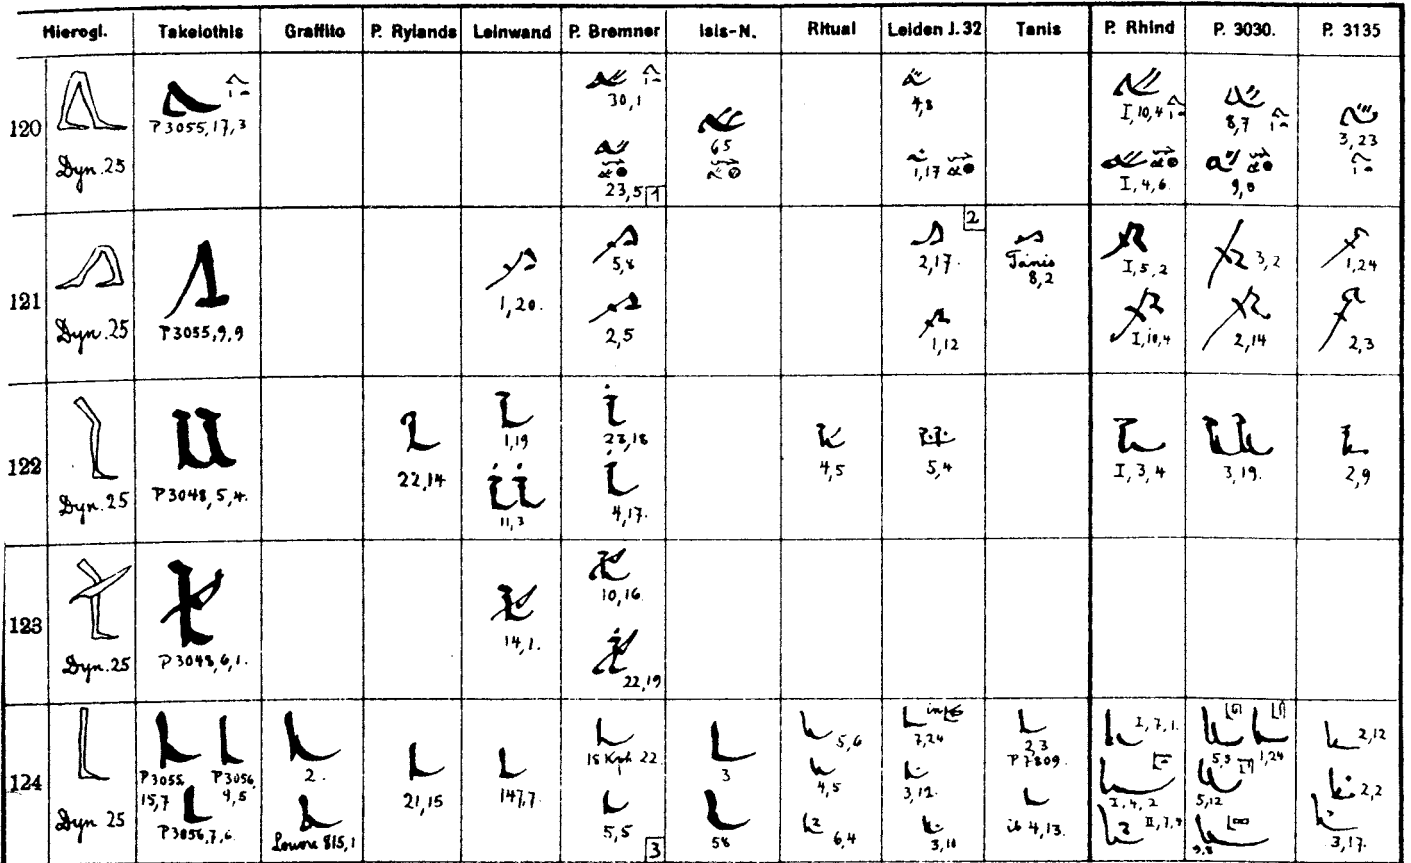 Hierogl. Takelothis Graffito P. Rylands Leinwand P. Bremner Isis-N. Ritual Leiden J.32 Tanis P. Rhind P. 3030. P. 3135
120
Dyn. 25
P 3055,17,3
30,1
23,5 1
65
4,8
1,17
I,10,4
I,4,6.
8,7
3,23
121
Dyn. 25
P 3055,9,9
1,20.
5,8
2,5
2
2,17.
1,12
Tanis
8,2
I,5,2
I,10,4
3,2
2,14
1,24
2,3
122
Dyn. 25
P 3048,5,4.
22,14
1,19
11,3
23,18
4,17.
4,5
5,4
I,3,4
3,19.
2,9
123
Dyn. 25
P 3048,6,1.
14,1.
10,16
22,19
124
Dyn 25
P 3055
15,7
P 3056,
4,5
P 3056,7,6.
2.
Louvre 815,1
21,15
147,7.
22
5,5
3
3
58
5,6
4,5
6,4
in
7,24
3,12.
3,10
2,3
P 7809.
ib 4,13.
I,7,1.
I,4,2
5,9
1,24
5,12
9,8
2,12
2,2
3,17.